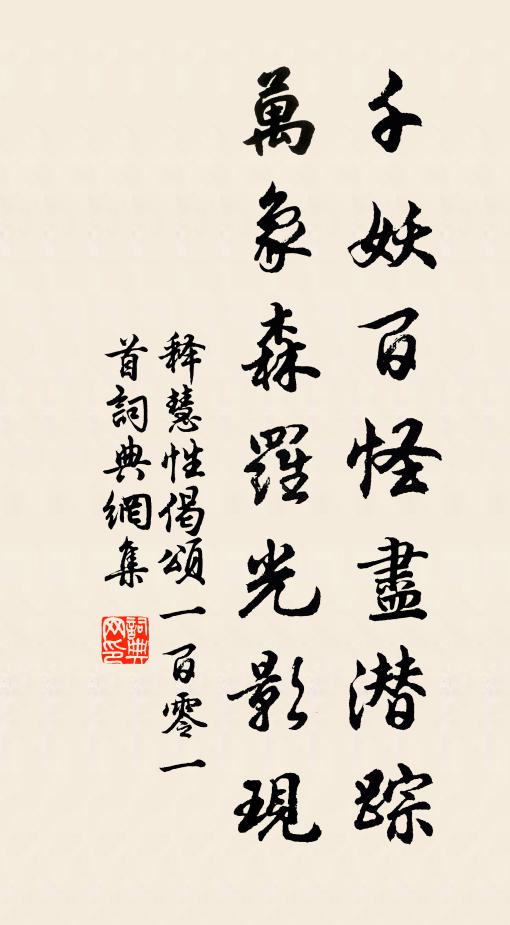 千妖百怪盡潜踪
萬象森羅光影現
释慧性偈頌一百零一
首詞典網集
詞典
网印